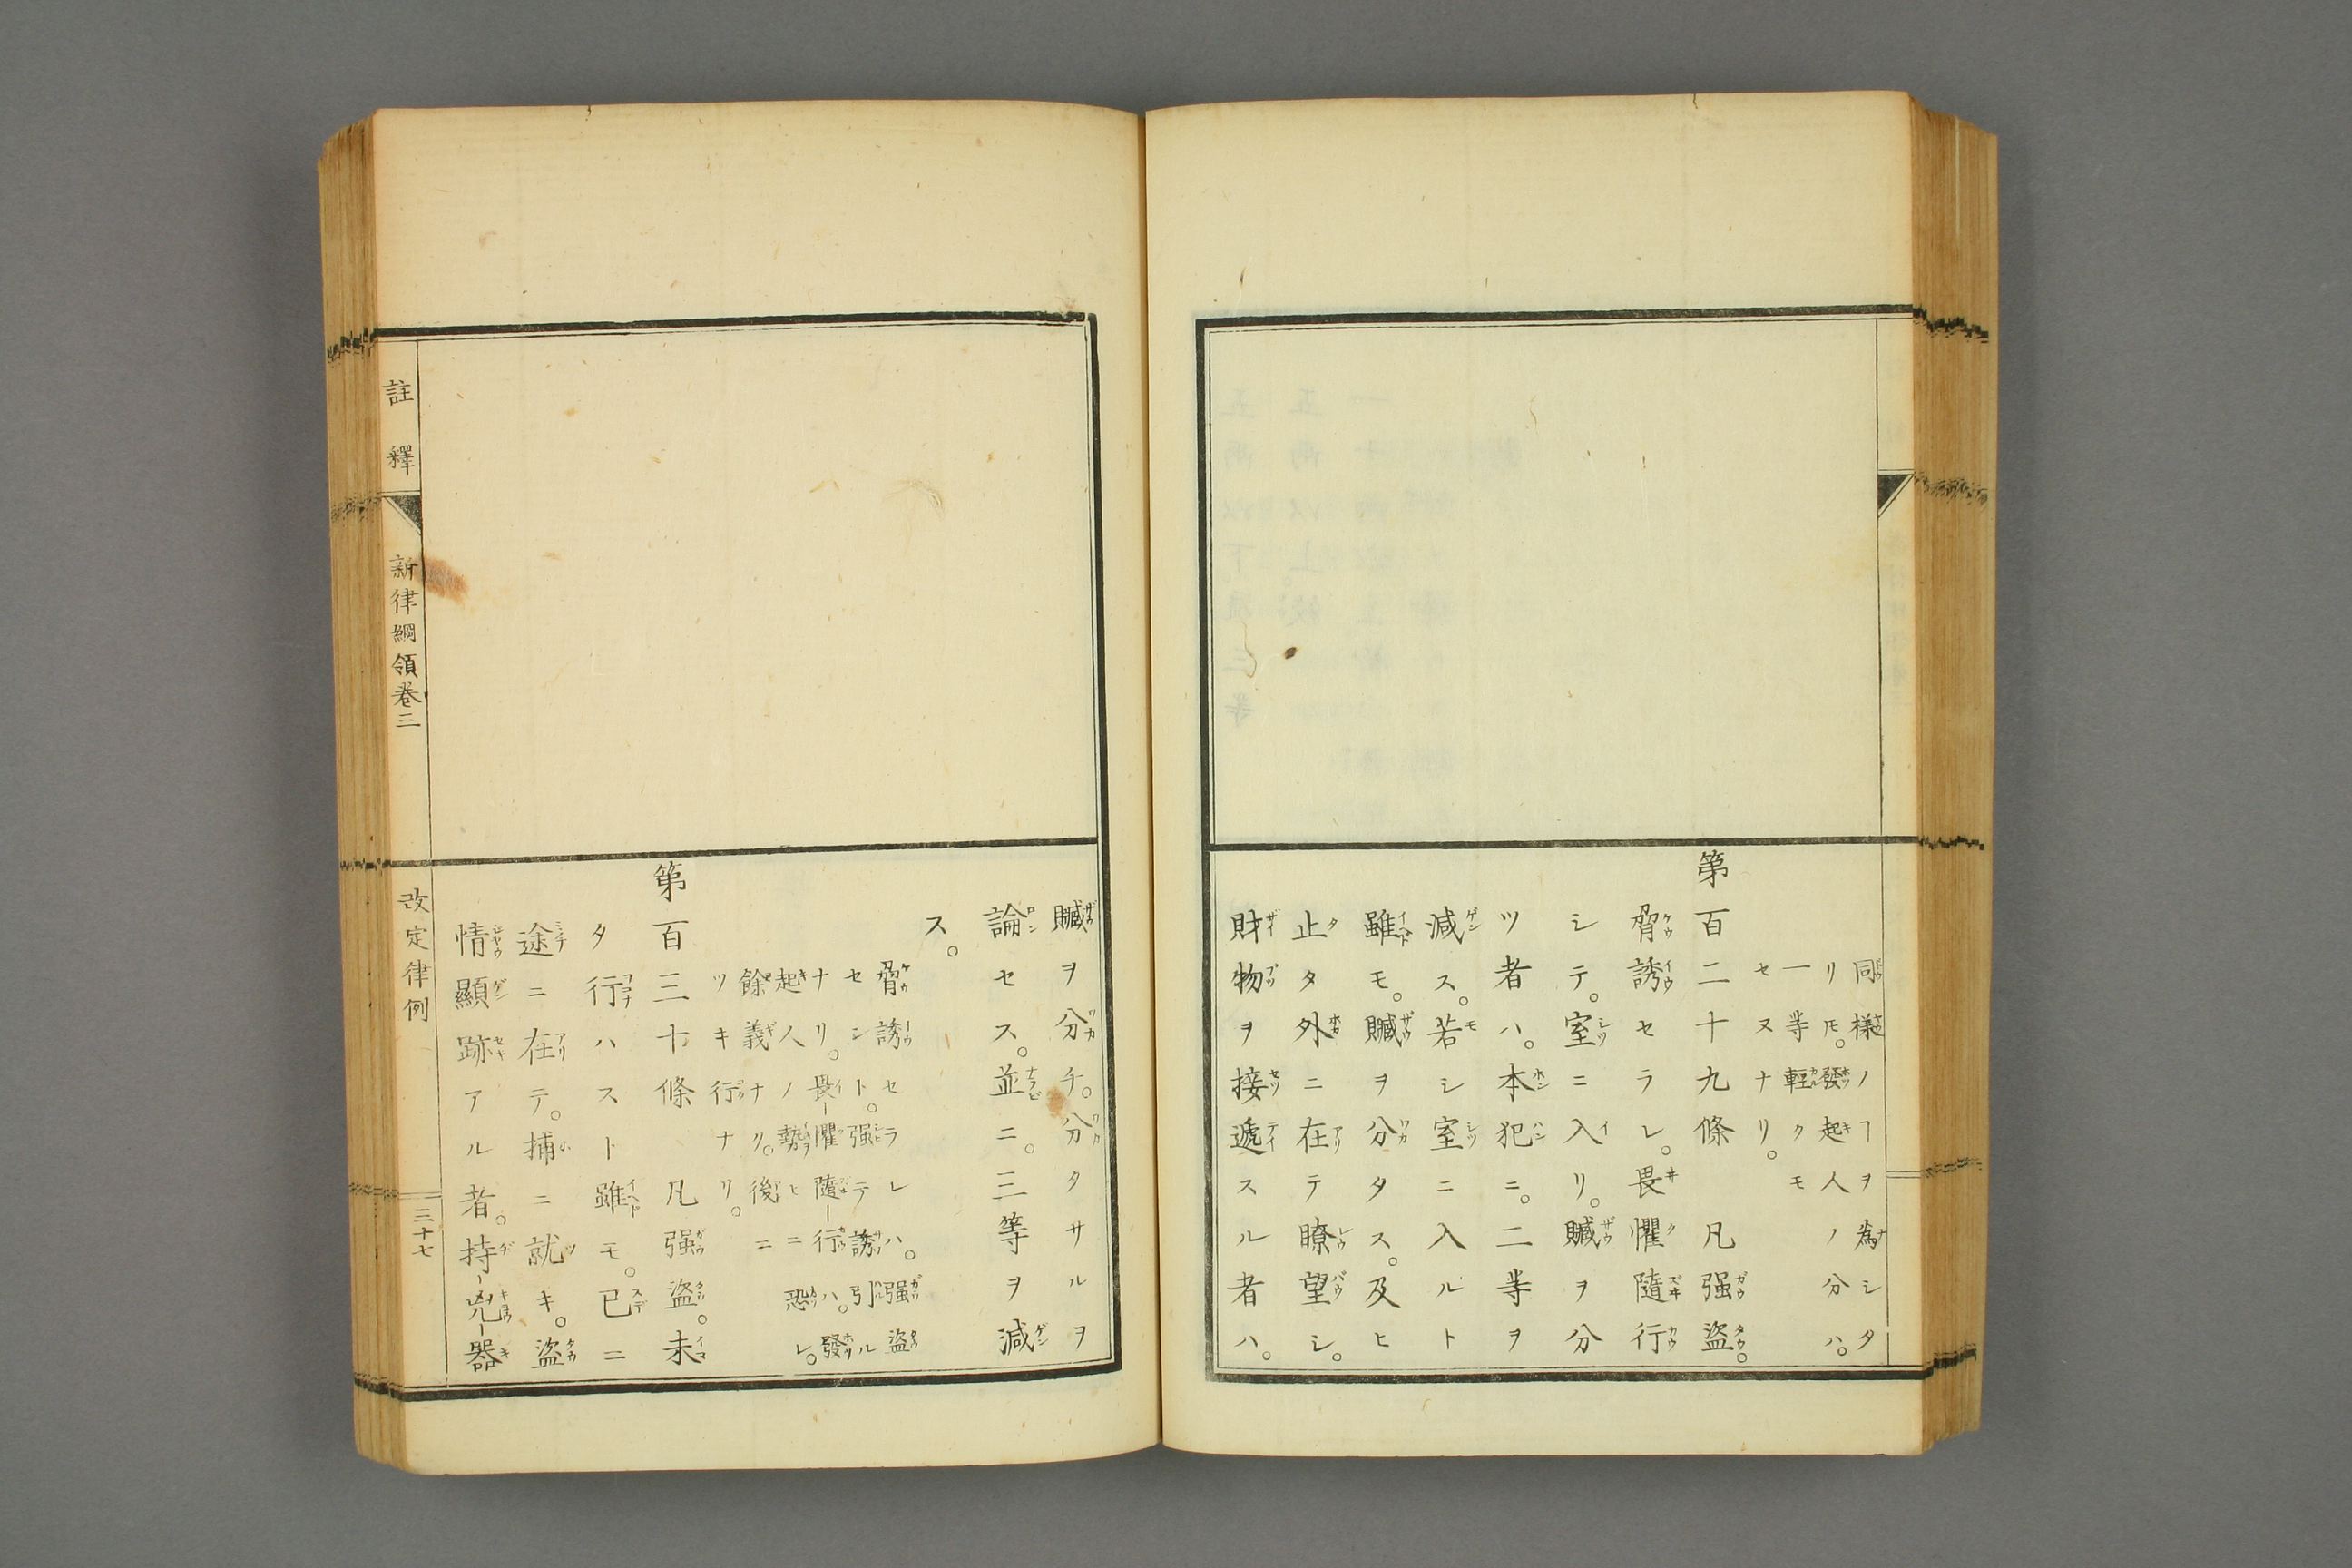 同様ノヿヲ為シタ
リ𪜈。發起人ノ分ハ。
一等輕クモ
セヌナリ。
第百二十九條 凡强盗。
脅誘セラレ。畏懼隨行
シテ。室ニ入リ。贓ヲ分
ツ者ハ。本犯ニ。二等ヲ
減ス。若シ室ニ入ルト
雖モ。贓ヲ分タス。及ヒ
止タ外ニ在テ瞭望シ。
財物ヲ接遞スル者ハ。
贓ヲ分チ。分タサルヲ
論セス。並ニ。三等ヲ減
ス。
脅誘セラレハ。强盗
セシト。强テ誘引ル
ナリ。畏懼隨行ハ。發
起人ノ勢ヒニ恐レ。
餘義ナリ。後ニ
ツキ行ナリ。
第百三十條 凡强盗。未
タ行ハスト雖モ。已ニ
途ニ在テ。捕ニ就キ。盗
情顯跡アル者。持兇器
註釋
新律綱領卷三
改定律例
三十七